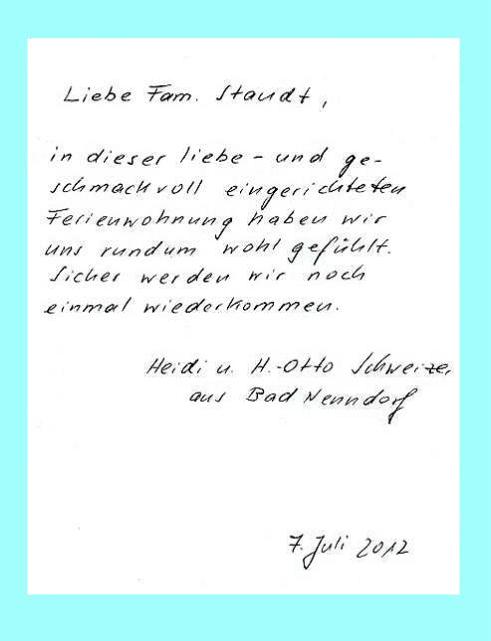 Liebe Fam. Staudt,
in dieser liebe- und ge-
schmackvoll eingerichteten
Ferienwohnung haben wir
uns rundum wohl gefühlt.
Sicher werden wir noch
einmal wiederkommen.
Heidi u. H.-Otto Schweizer
aus Bad Nenndorf
7. Juli 2012